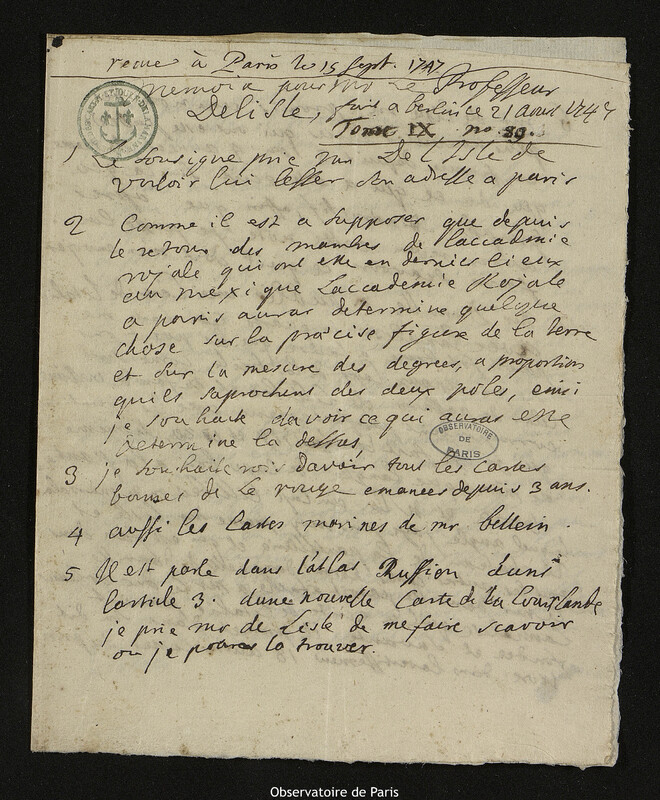 recue à Paris le 15 Sept. 1747
Memoir pour Mr Le Professeur
Delisle, fait a berlin ce 21 Aout 1747
Tome IX no 89.
1 Le Sousigne prie Mr De L'Isle de
vouloir lui lesser son adresse a paris
2 Comme il est a supposer que depuis
le retour des mambres de laccademie
rojale qui ont este en dernies lieux
au mexique Laccademie Rojale
a paris auras determine quelque
chose sur la præcise figure de la terre
et sur la mesure des degrees, a proportion
quils saprochent des deux poles, einsi
je souhaite davoir ce qui auras este
determine la dessus
3 je souhaiterois davoir tout les cartes
bonnes de Le rouge emanees depuis 3 ans.
4 aussi les Cartes marines de mr bellein.
5 Il est parle dans l'atlas Russien dans
larticle 3. dune nouvelle Carte de la Courlande
je prie mr de Lisle de me faire scavoir
ou je poures la trouver.
OBSERVATOIRE
DE
PARIS
Observatoire de Paris